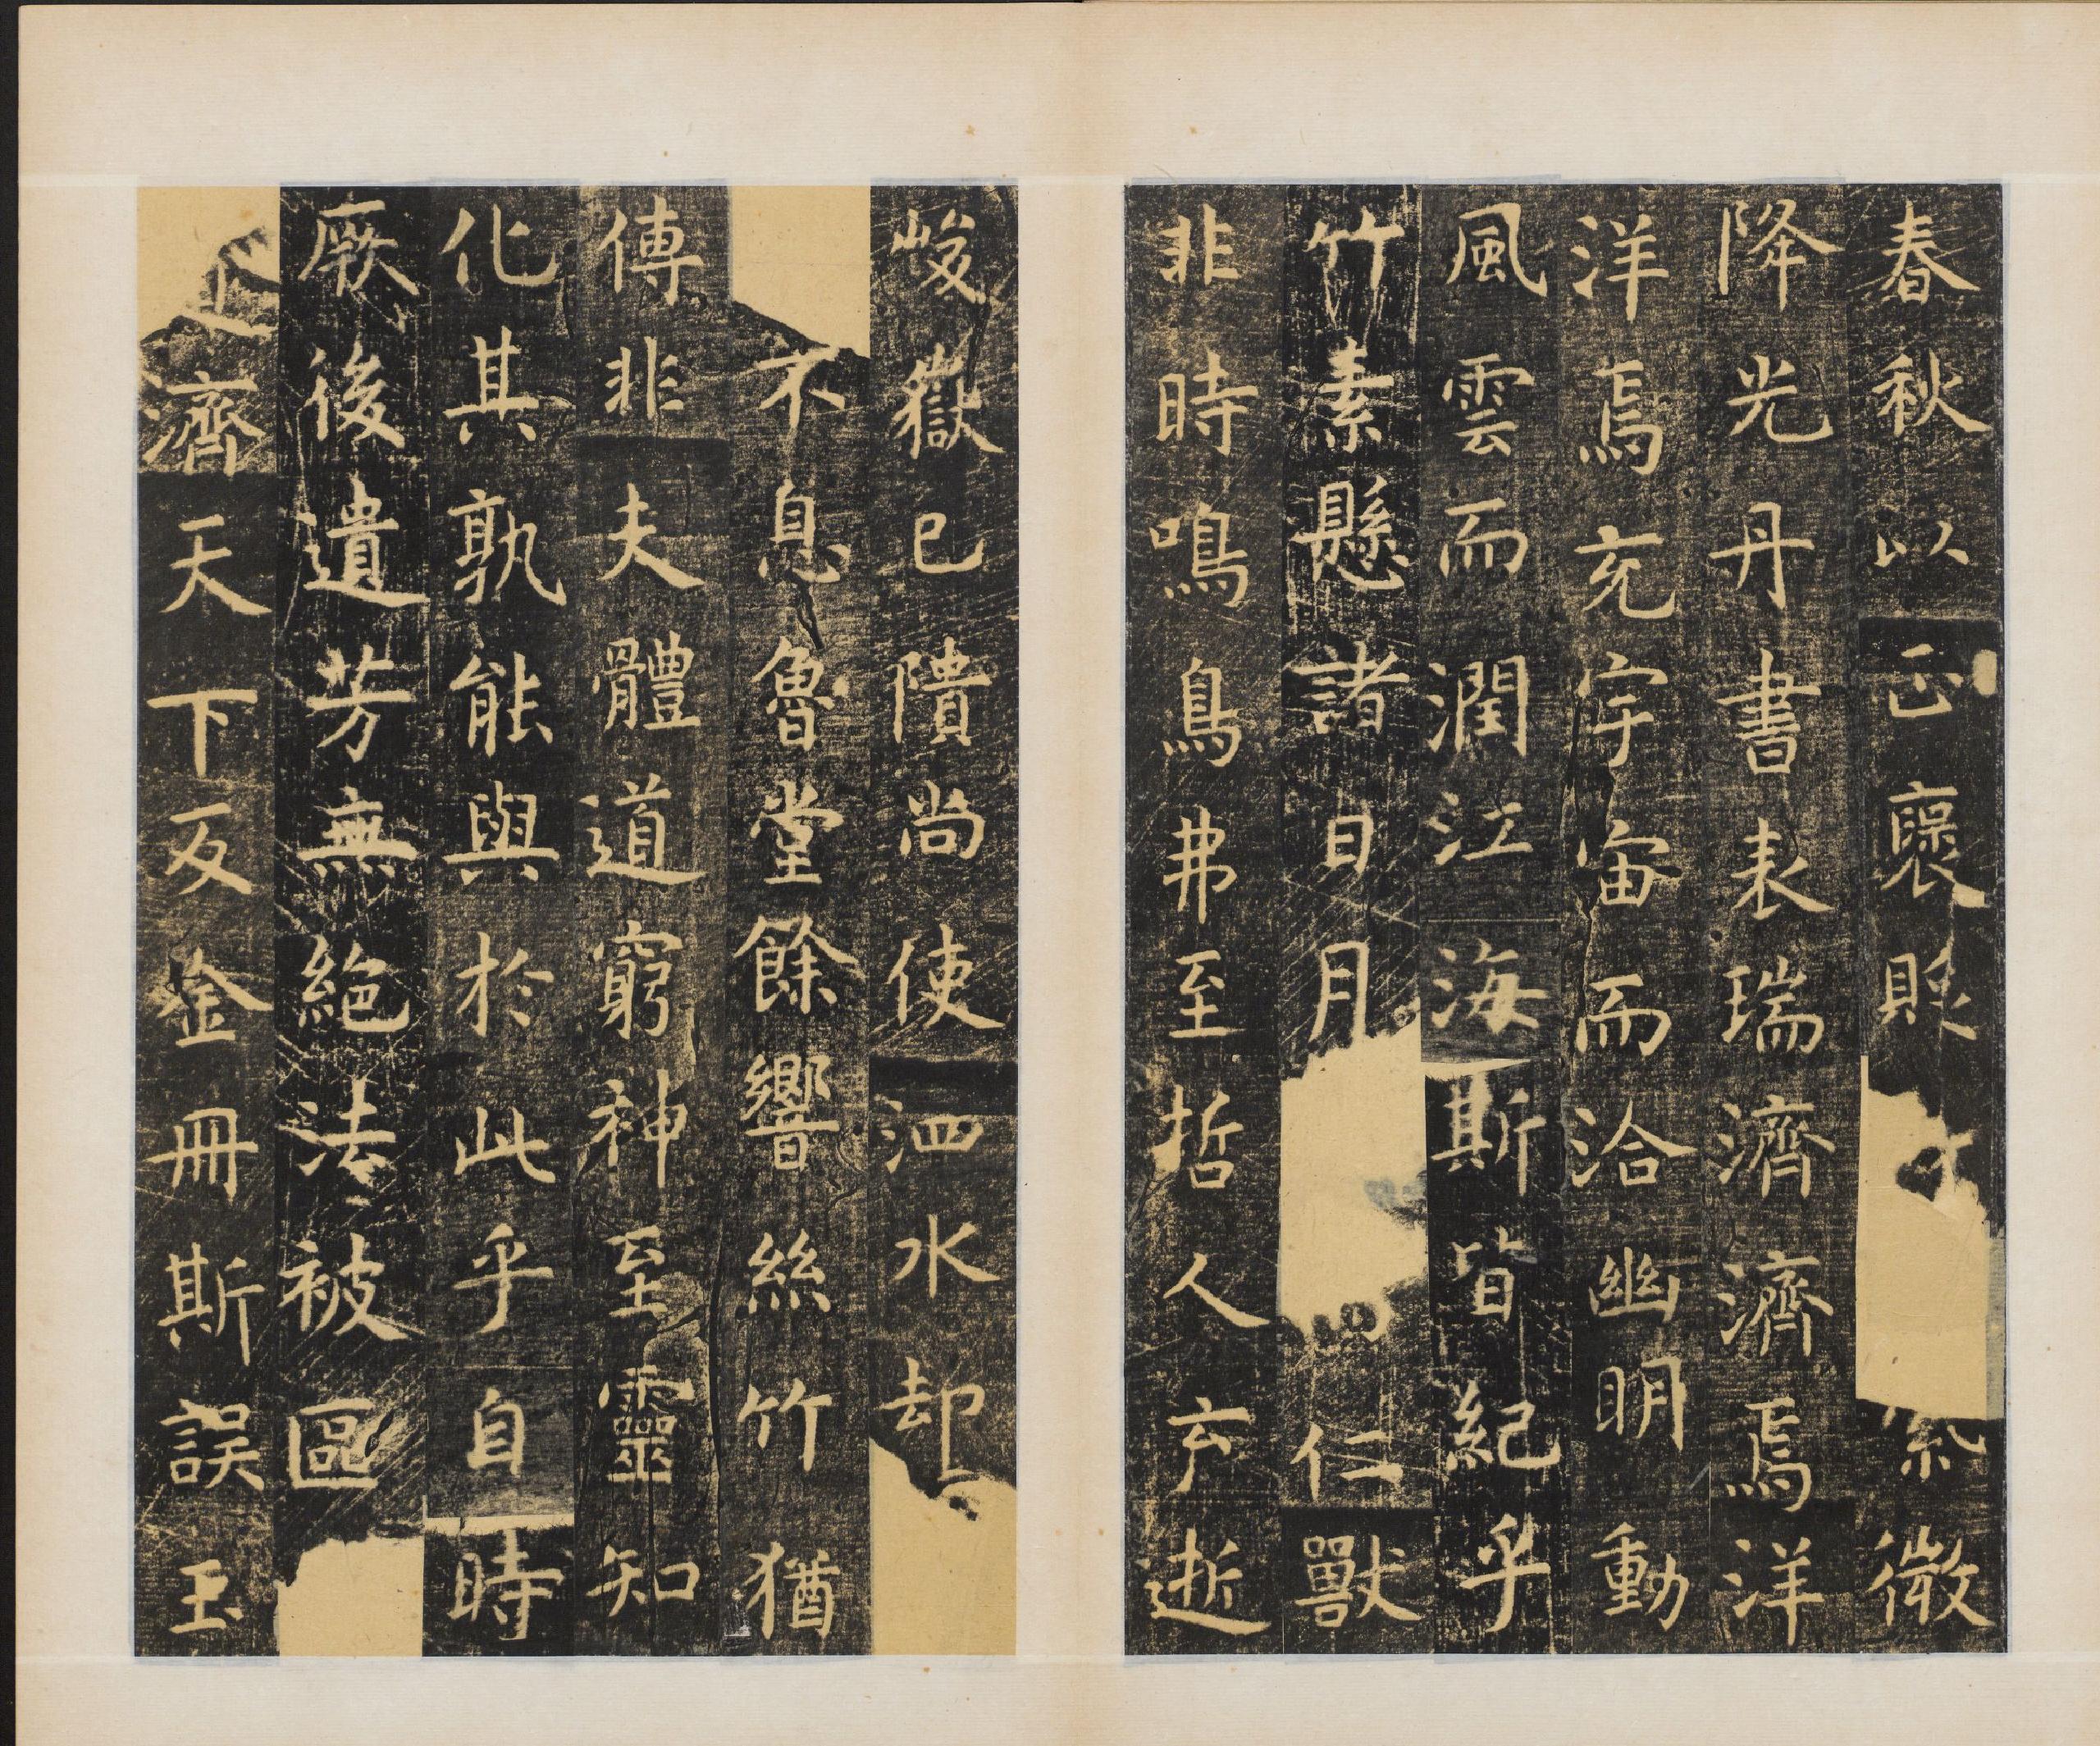 春秋以正襃貶糸微
降光丹書表瑞濟濟焉洋
洋焉充宇宙而洽幽明動
風雲而潤江海斯皆紀乎
竹素懸諸日月仁獸
非時鳴鳥弗至哲人云逝
峻嶽已隤尚使泗水却
不息魯堂餘響絲竹猶
傳非夫體道窮神至靈知
化其孰能與於此乎自時
厥後遺芳無絕法被區
濟天下及金冊斯誤玉